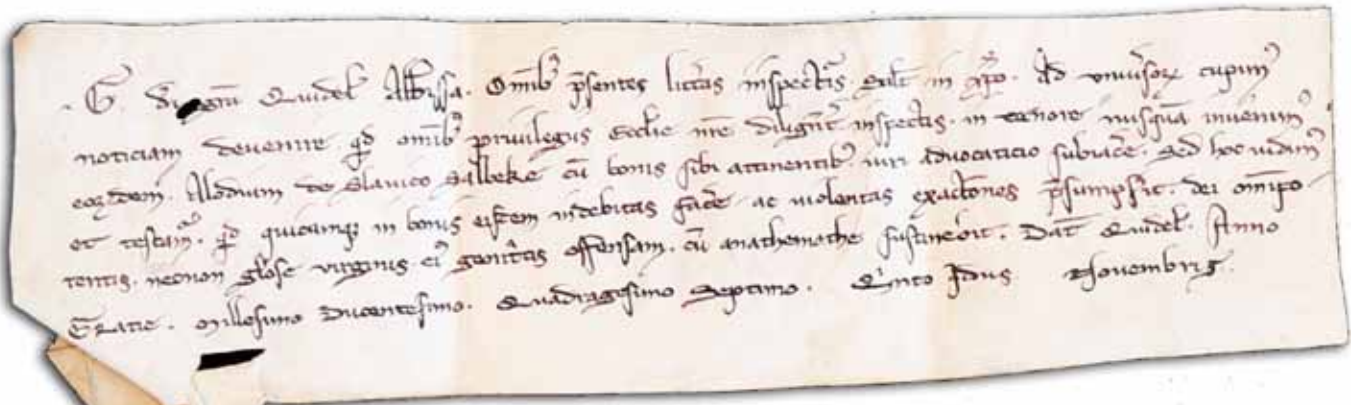 G. di gra Quidel Abbissa. Omib' psentes litteras inspectis salt in xpo. Ad univsor cupim'
noticiam devenire qd omib' privilegiis Ecclie nre diligent inspectis. in tenore nusqua invenim'
eordem. Alodium de Slavico Salbeke cu bonis sibi attinentib' iuri advocaticio subiace. Sed hoc vidim'
et testam'. qd quicumq in bonis eisdem indebitas face ac violentas exactiones psumpsit. dei omipo
tentis. necnon gliose virginis ei' genitcis offensam. cu anathemathe sustinebit. Dat Quidel. Anno
Gratie. Millesimo Ducentesimo. Quadragesimo Septimo. Quinto Idus Novembris.